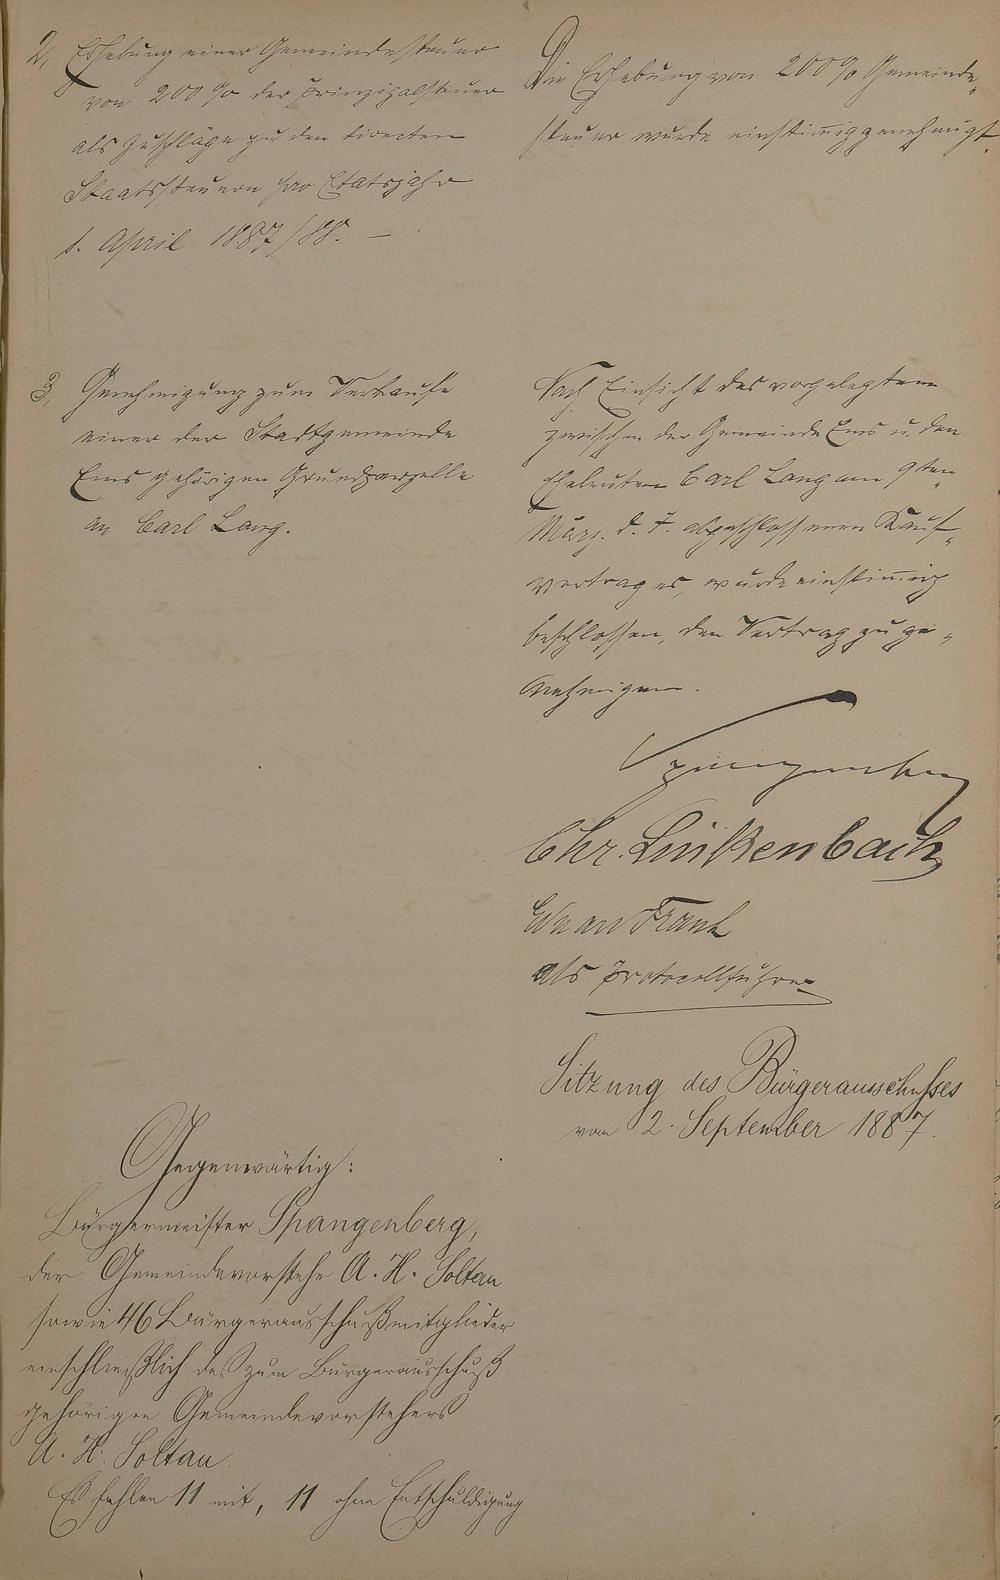 2, Erhebung einer Gemeindesteuer
von 200% der Prinzipalsteuer
als Zuschläge zu den directen
Staatssteuern pro Etatsjahr
1. April 1887/88. —
Die Erhebung von 200% Gemeinde„
steuer wurde einstimig genehmigt.
3, Genehmigung zum Verkaufe
einer der Stadtgemeinde
Ems gehörigen Grundparzelle
an Carl Lang.
Nach Einsicht des vorgelegten
zwischen der Gemeinde Ems u. den
Eheleuten Carl Lang am 9ten
März d. J. abgeschlossenen Kauf„
vertrages, wurde einstimig
beschlossen, den Vertrag zu ge„
nehmigen.
Spangenberg
Chr. Linkenbach
Frank
als Protocollführer
Sitzung des Bürgerausschusses
vom 2. September 1887.
Gegenwärtig:
Bürgermeister Spangenberg,
der Gemeindevorsteher A. H. Soltau
sowie 46 Bürgerausschußmitglieder
einschließlich des zum Bürgerausschuß
gehörigen Gemeindevorstehers
A. H. Soltau.
Es fehlen 11 mit, 11 ohne Entschuldigung